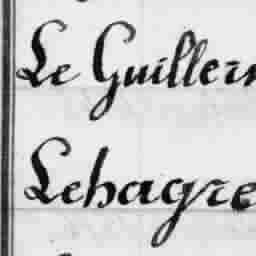 Le Guiller
Lehagre